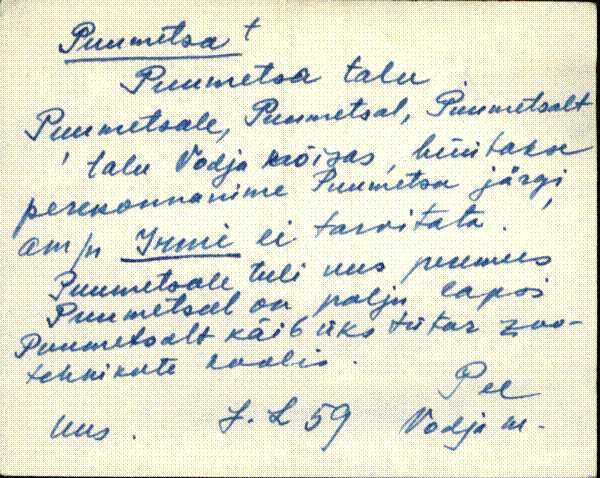 Puumetsa +
Puumetsa talu
Puumetsale, Puumetsal, Puumetsalt
talu Vodja mõisas, hüütakse
perekonnanime Puumetsa järgi,
am/n Immi ei tarvitata.
Puumetsale tuli uus peremees
Puumetsal on palju lapsi
Puumetsalt käib üks tütar zoo-
tehnikute koolis.
Pee
Uus. J. L 59 Vodja m.